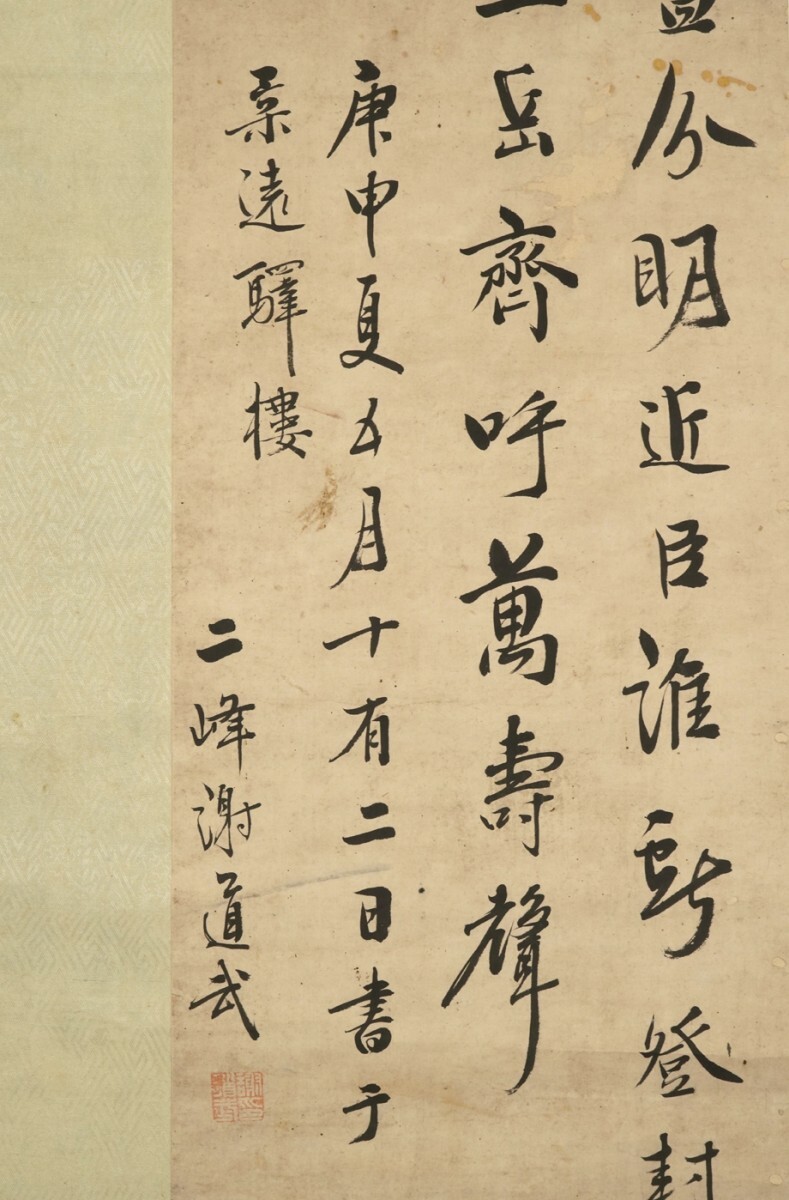 分明近臣誰獻登封
岳齊呼萬壽聲
庚申夏五月十有二日書于
柔遠驛樓
二峰謝道武